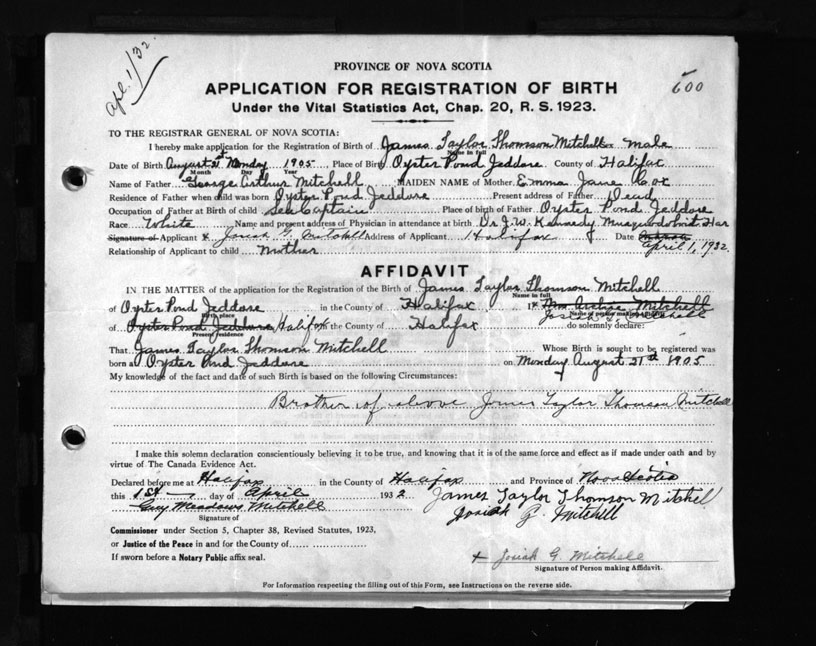 apl. 1/32
600
PROVINCE OF NOVA SCOTIA
APPLICATION FOR REGISTRATION OF BIRTH
Under the Vital Statistics Act, Chap. 20, R. S. 1923.
TO THE REGISTRAR GENERAL OF NOVA SCOTIA:
I hereby make application for the Registration of Birth of James Taylor Thomson Mitchell Sex Male
Name in full
Date of Birth August 21st Monday 1905 Place of Birth Oyster Pond Jeddore County of Halifax
Month Day
Name of Father George Arthur Mitchell MAIDEN NAME of Mother Emma Jane Cox
Residence of Father when child was born Oyster Pond Jeddore Present address of Father Dead
Occupation of Father at Birth of child Sea Captain Place of birth of Father Oyster Pond Jeddore
Race White Name and present address of Physician in attendance at birth Dr J. W. Kennedy Musquodoboit Har
Signature of Applicant x Josiah G. Mitchell Address of Applicant Halifax Date April 1, 1932
Relationship of Applicant to child Mother
AFFIDAVIT
IN THE MATTER of the application for the Registration of the Birth of James Taylor Thomson Mitchell
Name in full
of Oyster Pond Jeddore in the County of Halifax I, x Mitchell
Birth place
Name of person making affidavit
of Oyster Pond Jeddore Halifax in the County of Halifax Josiah G. Mitchell do solemnly declare:
Present residence
That James Taylor Thomson Mitchell Whose Birth is sought to be registered was
born at Oyster Pond Jeddore on Monday August 21st 1905
My knowledge of the fact and date of such Birth is based on the following Circumstances:
Brother of above James Taylor Thomson Mitchell
I make this solemn declaration conscientiously believing it to be true, and knowing that it is of the same force and effect as if made under oath and by
virtue of The Canada Evidence Act.
Declared before me at Halifax in the County of Halifax and Province of Nova Scotia
this 1st day of April 1932 James Taylor Thomson Mitchel
Guy Meadows Mitchell Josiah G. Mitchell
Signature of
Commissioner under Section 5, Chapter 38, Revised Statutes, 1923,
or Justice of the Peace in and for the County of
If sworn before a Notary Public affix seal.
x Josiah G. Mitchell
Signature of Person making Affidavit.
For Information respecting the filling out of this Form, see Instructions on the reverse side.